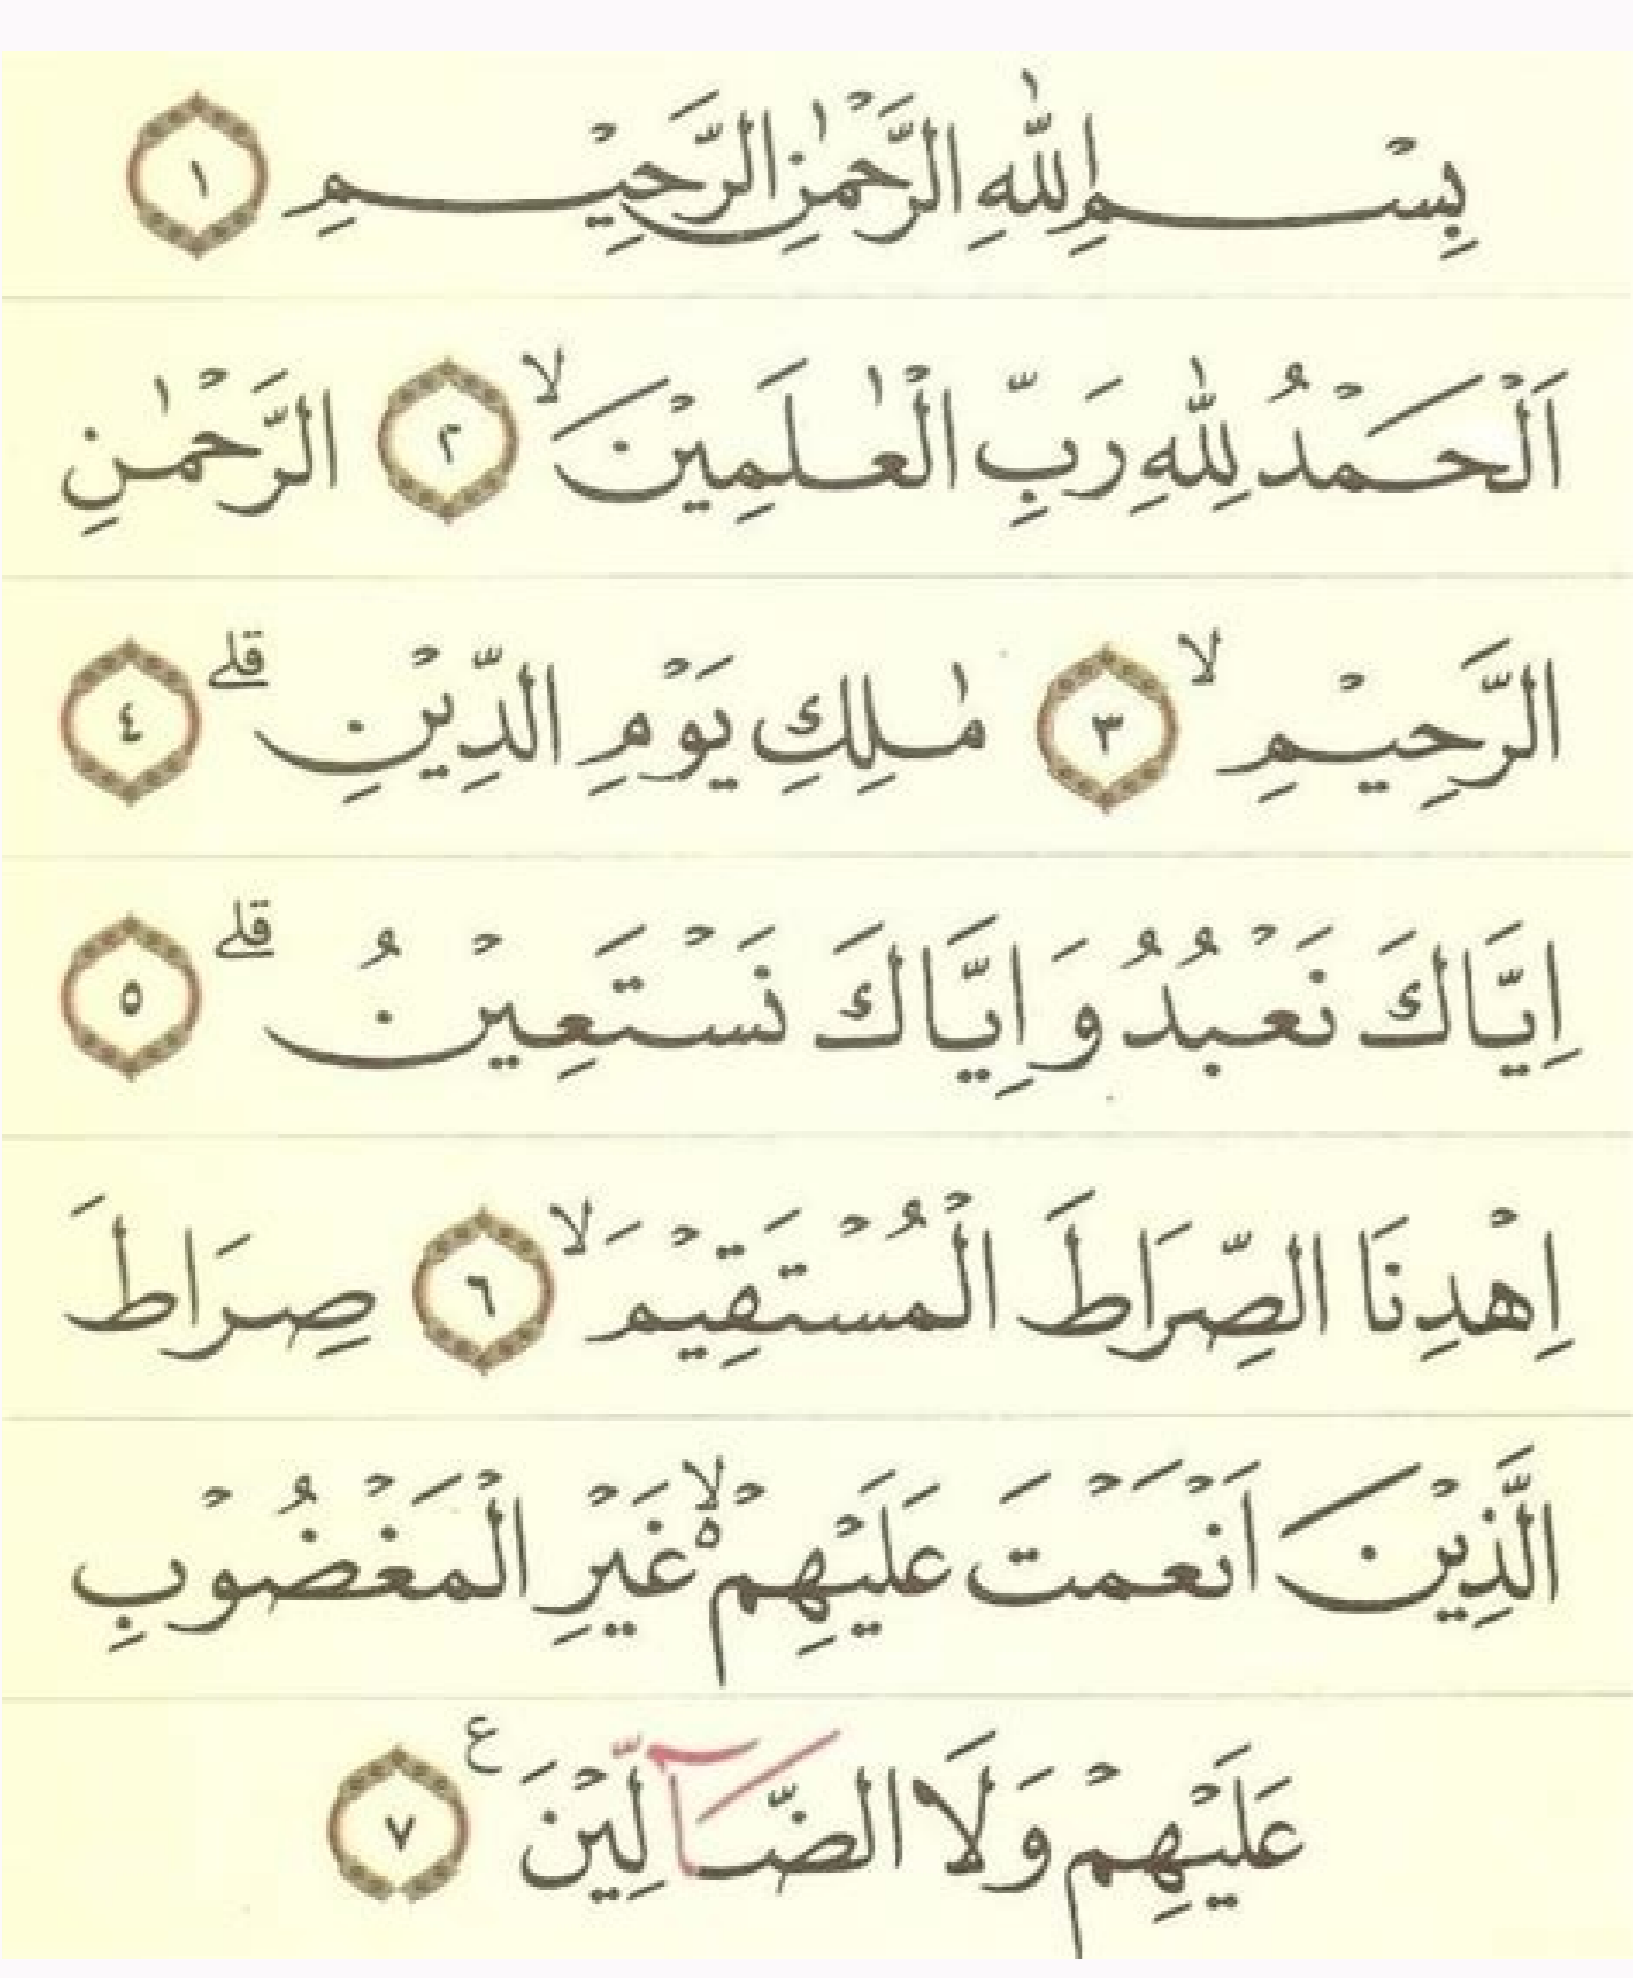 بِسْمِ اللّٰهِ الرَّحْمٰنِ الرَّحِيْمِ ١
اَلْحَمْدُ لِلّٰهِ رَبِّ الْعٰلَمِيْنَ ۙ ٢ الرَّحْمٰنِ
الرَّحِيْمِ ۙ ٣ مٰلِكِ يَوْمِ الدِّيْنِ ۗ ٤
اِيَّاكَ نَعْبُدُ وَاِيَّاكَ نَسْتَعِيْنُ ۗ ٥
اِهْدِنَا الصِّرَاطَ الْمُسْتَقِيْمَ ۙ ٦ صِرَاطَ
الَّذِيْنَ اَنْعَمْتَ عَلَيْهِمْ ۙ ە غَيْرِ الْمَغْضُوْبِ
عَلَيْهِمْ وَلَا الضَّاۤلِّيْنَ ع ٧